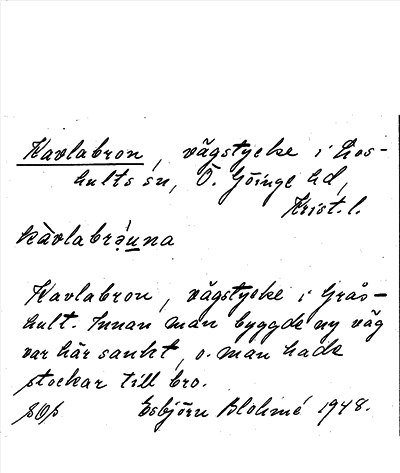 Kavlabron, vägstycke i Hos-
hults sn, Ö. Göinge hd,
Krist. l.
kàvlabrə́una
Kavlabron, vägstycke i Grås-
hult. Innan man byggde ny väg
var här sankt, o. man hade
stockar till bro.
Esbjörn Blohmé 1948.